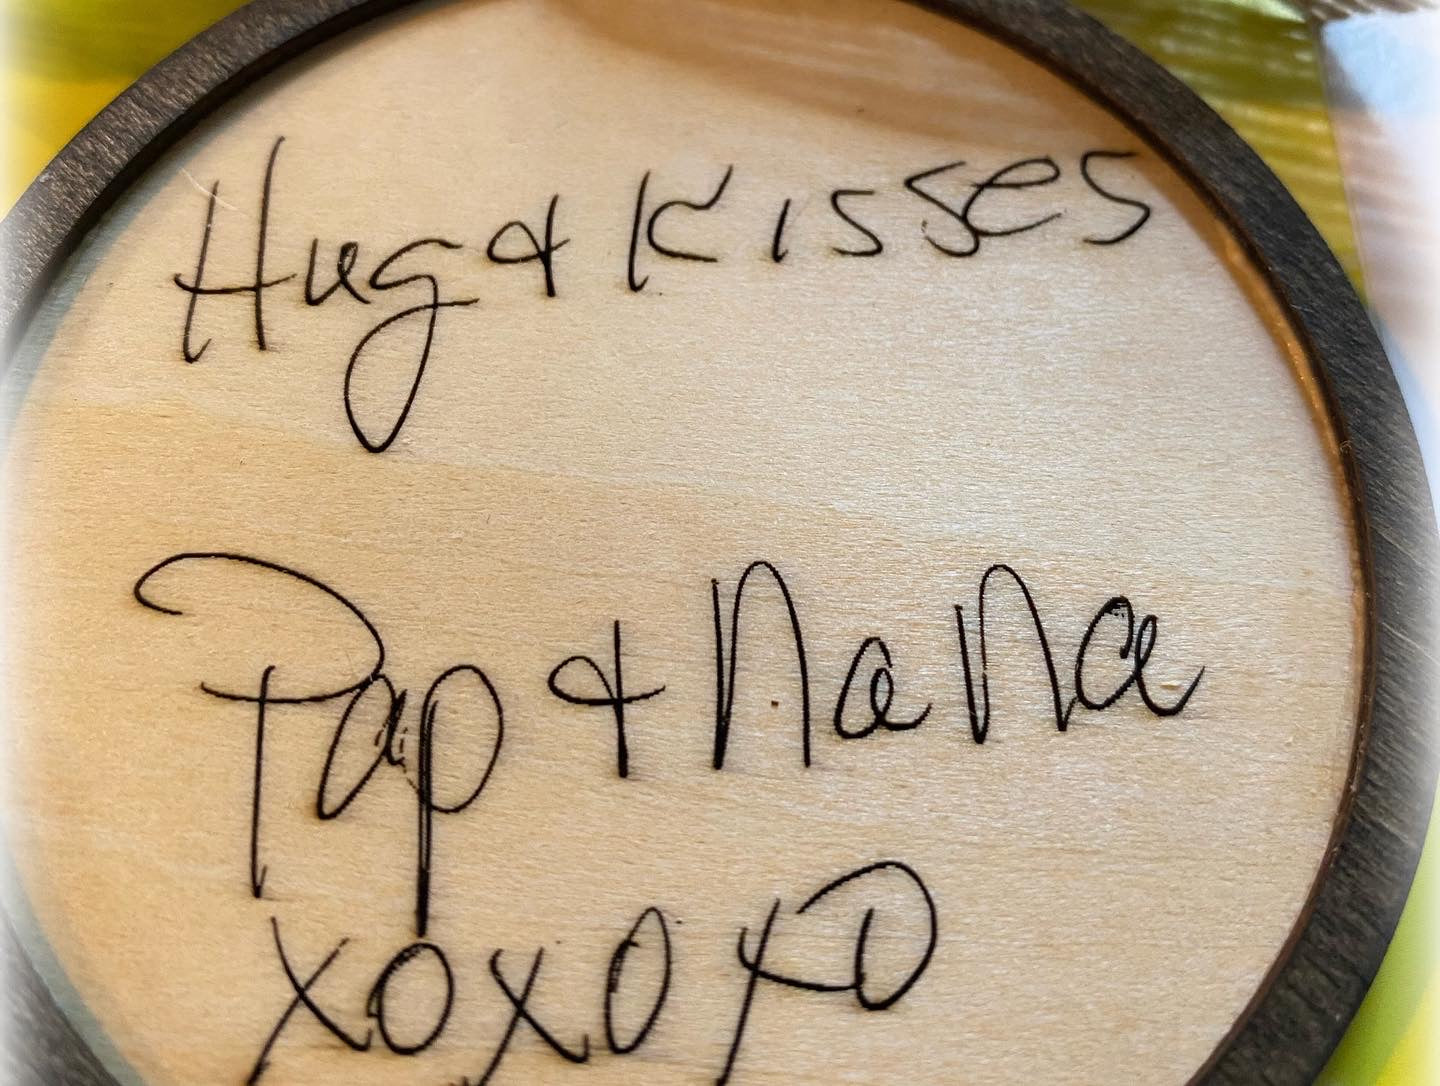 Hug & Kisses
Pap & NaNa
xoxoxo